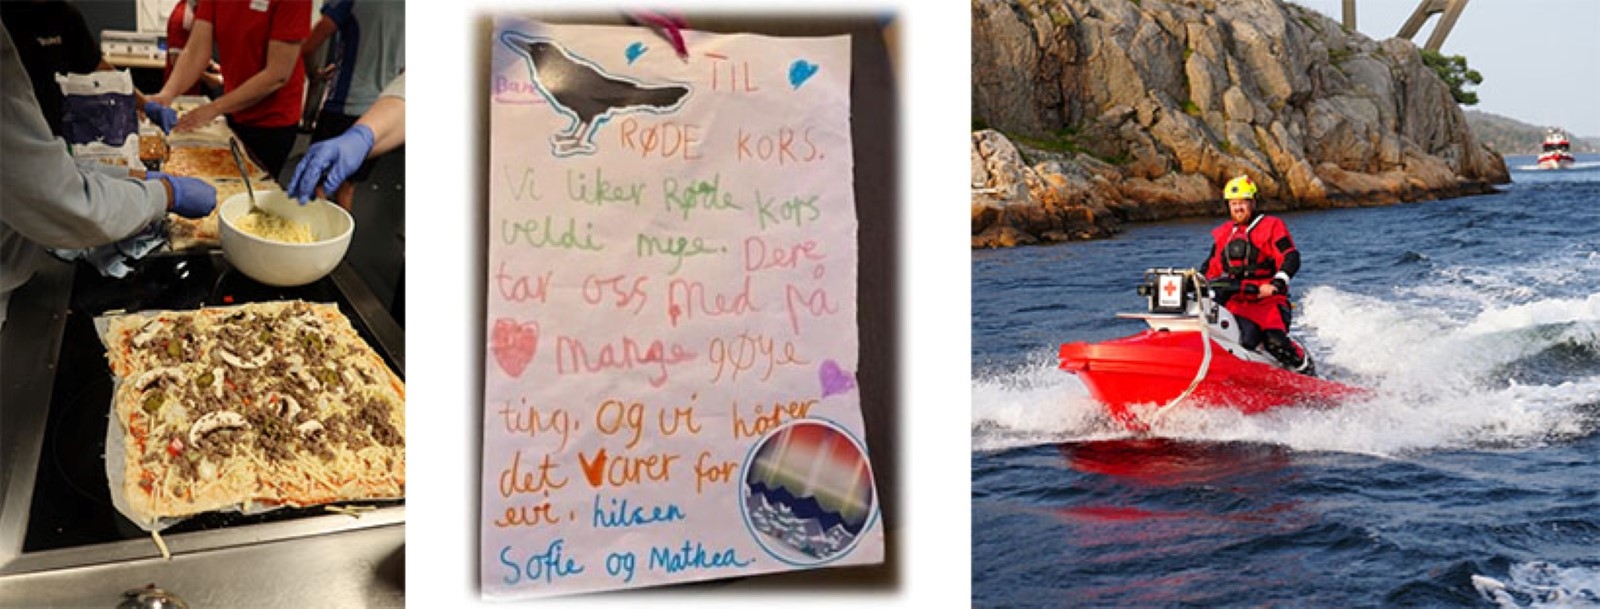 TIL
RØDE KORS.
Vi liker Røde Kors
veldi mye. Dere
tar oss med på
mange gøye
ting. Og vi håper
det varer for
evi. hilsen
Sofie og Mathea.